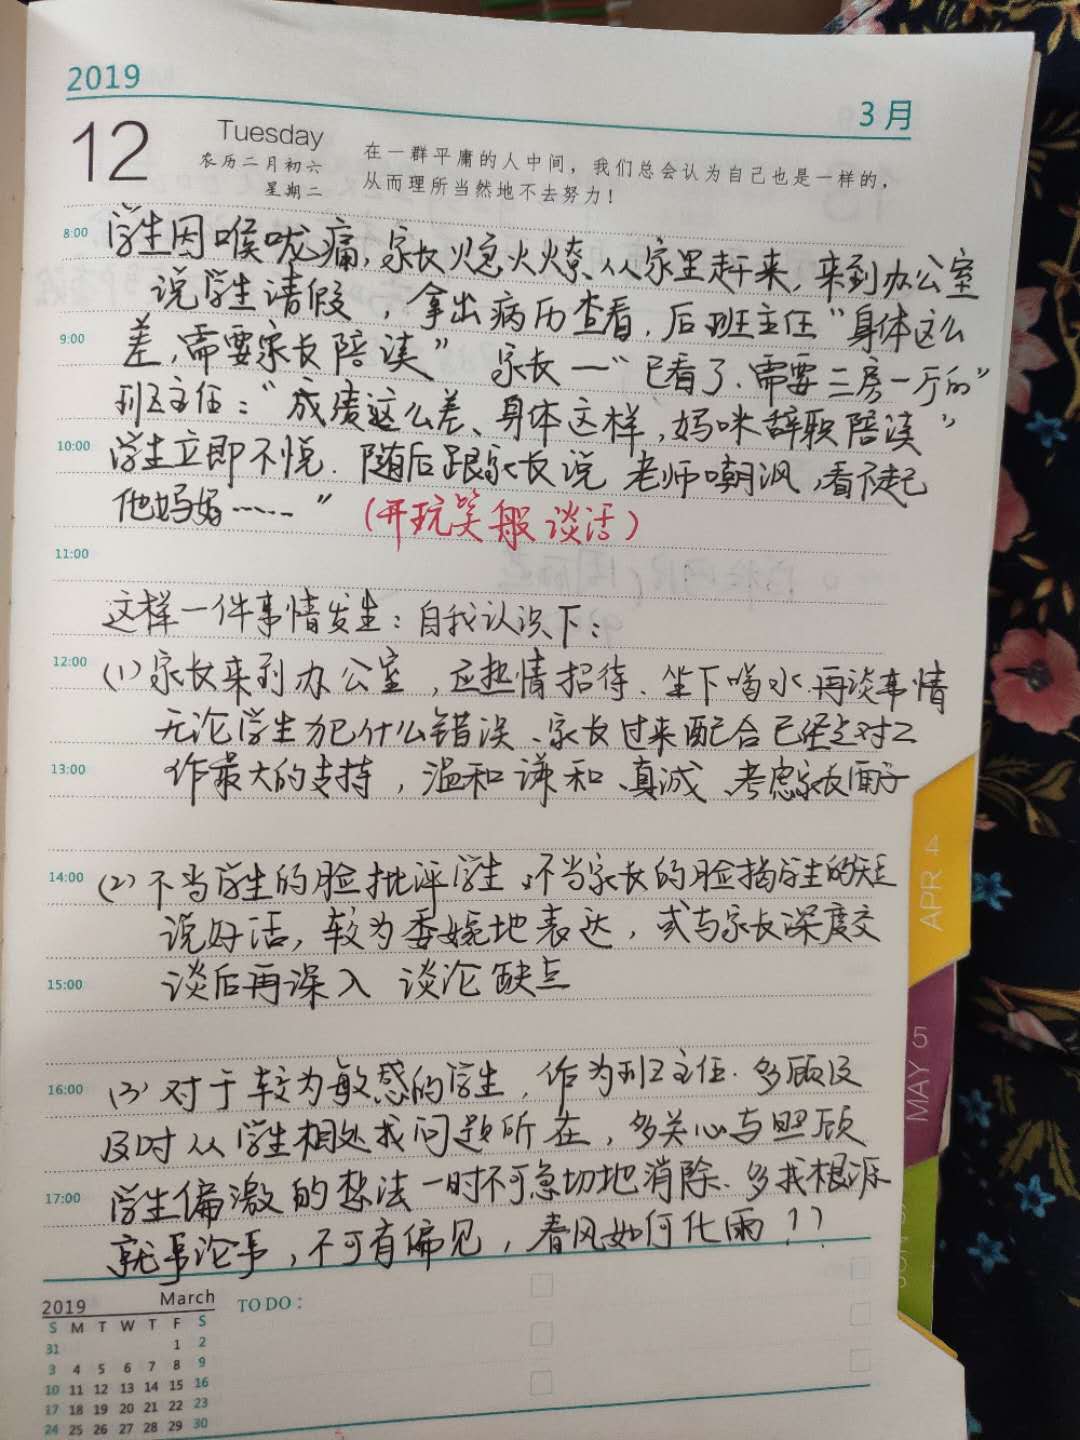 2019
3月
12
Tuesday
农历二月初六
星期二
在一群平庸的人中间，我们总会认为自己也是一样的，
从而理所当然地不去努力！
8:00
学生因喉咙痛，家长火急火燎、从家里赶来，来到办公室
说学生请假，拿出病历查看，后班主任“身体这么
9:00
差，需要家长陪读” 家长一“已看了、需要二房一厅的”
班主任：“成绩这么差、身体这样，妈咪辞职陪读”
10:00
学生立即不悦．随后跟家长说 老师嘲讽，看不起
他妈妈……” (开玩笑般谈话)
11:00
这样一件事情发生：自我认识下：
12:00
(1) 家长来到办公室，应热情招待、坐下喝水．再谈事情
无论学生犯什么错误、家长过来配合已经是对工
13:00
作最大的支持，温和谦和、真诚、考虑家长面子
14:00
(2) 不当学生的脸批评学生，不当家长的脸揭学生的短
说好话，较为委婉地表达，或与家长深度交
15:00
谈后再深入 谈论缺点
16:00
(3) 对于较为敏感的学生，作为班主任．多顾及
及时从学生相处找问题所在，多关心与照顾
17:00
学生偏激的想法一时不可急切地消除．多找根源
就事论事，不可有偏见，春风如何化雨？？
2019 March
S M T W T F S
31 1 2
3 4 5 6 7 8 9
10 11 12 13 14 15 16
17 18 19 20 21 22 23
24 25 26 27 28 29 30
TO DO：
APR 4
MAY 5
JUN